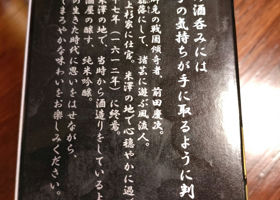 酒呑みには
の気持ちが手に取るように判
戦国傾奇者、前田慶次。
にして、諸芸に遊ぶ風流人。
上杉家に仕官。米澤の地で心穏やかに過ご
十七年（一六一二年）に終意。
米澤の地で、当時から酒造りをしているよ
酒屋の醸す、純米吟醸。
の生きた時代に思いをはせながら、
まろやかな味わいをお楽しみください。